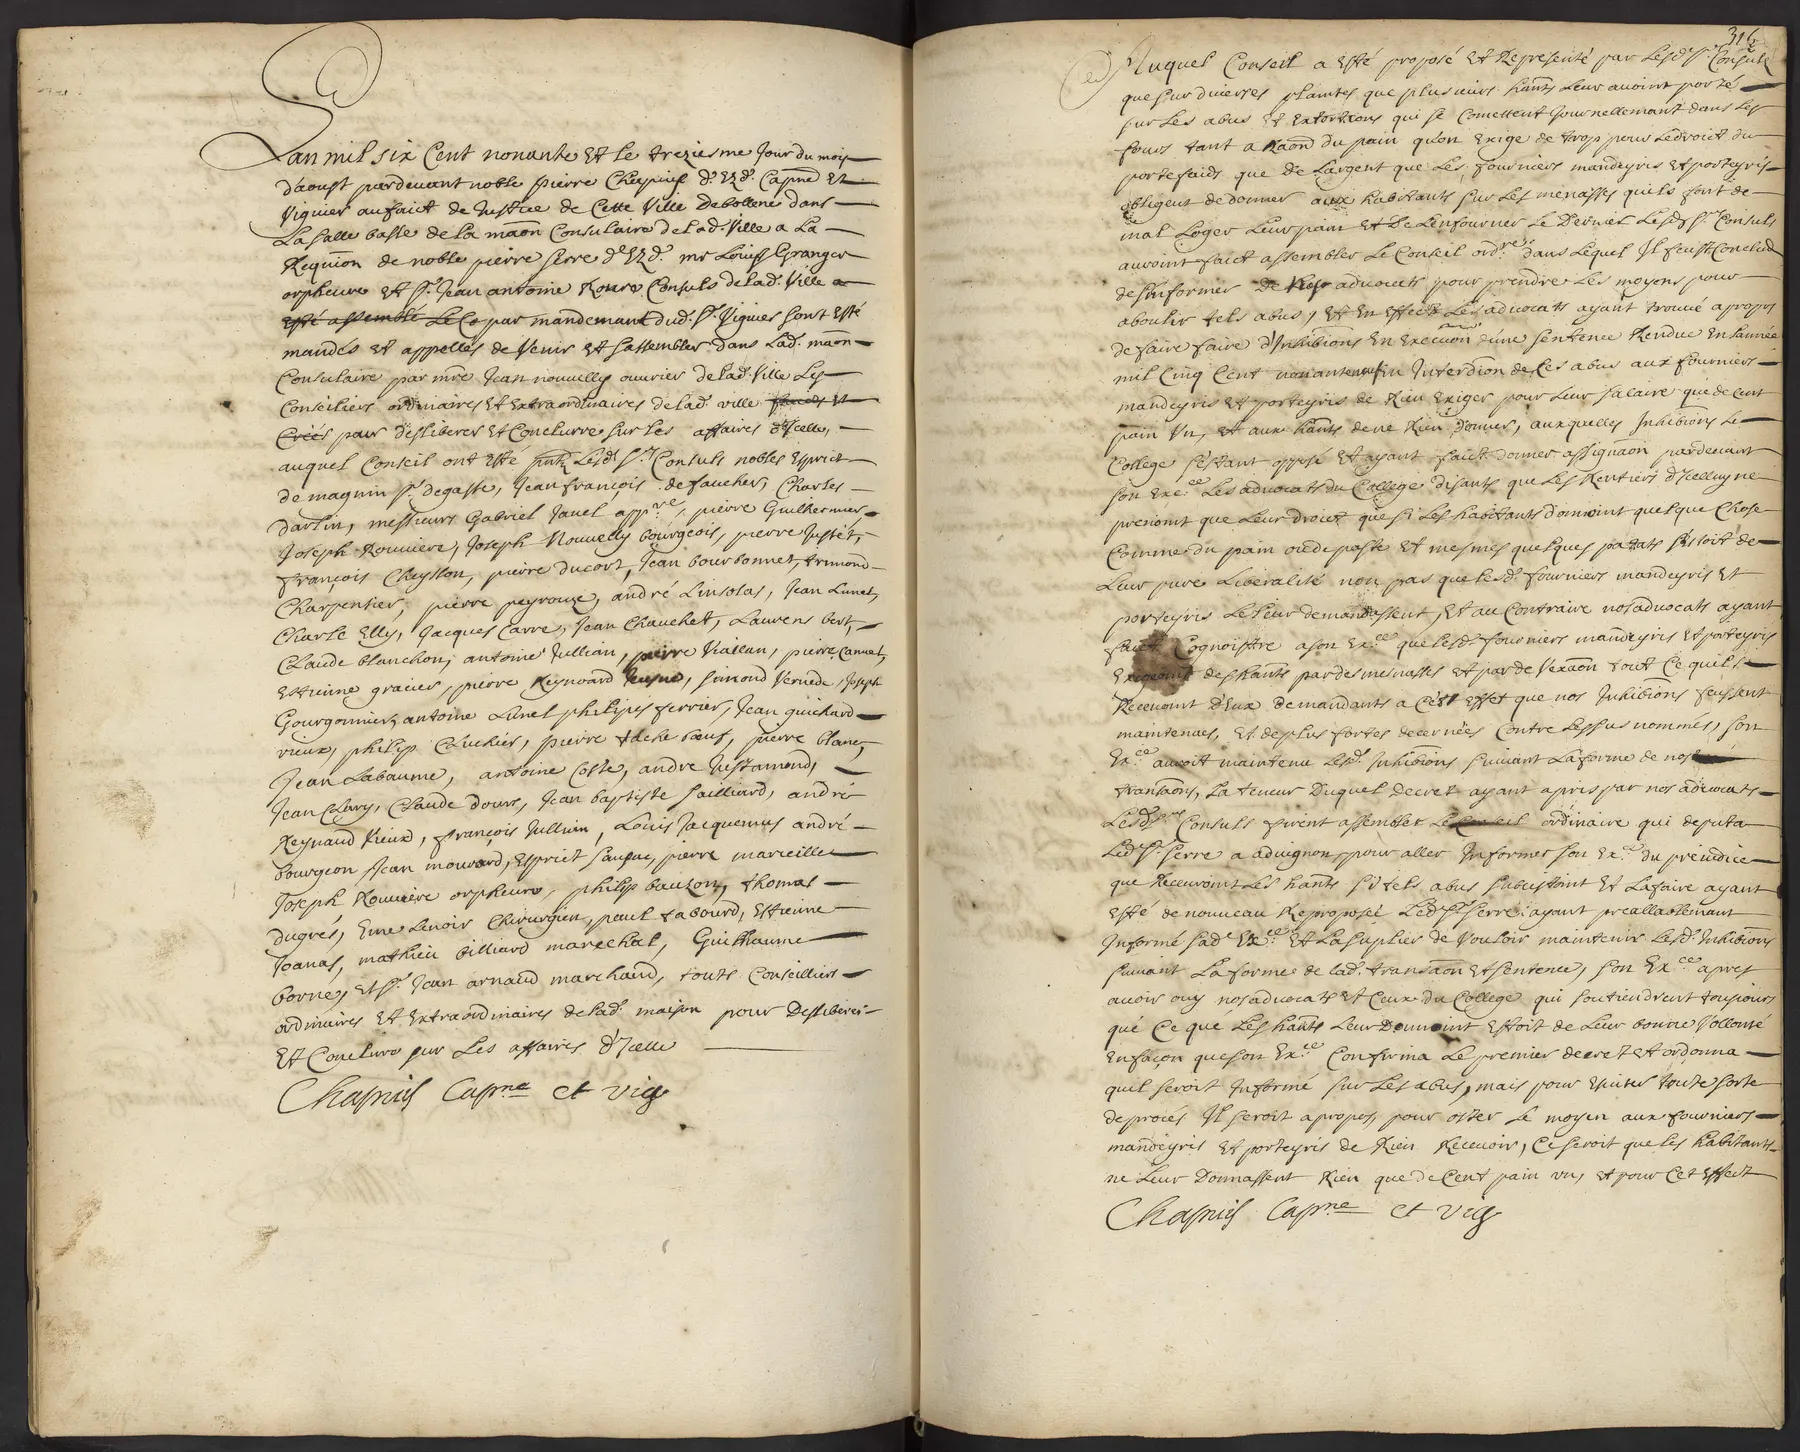 Lan mil six Cent nonante Et le treziesme Jour du mois
d'aoust pardevant noble pierre Chapuis dr. Ezd. Capne Et
Viguier au faict de Justice de Cette Ville Debollene dans
La salle basse de la maon Consulaire de lad. Ville a La
Requiōn de noble pierre serre dr Ezd. mr Louis Granger
orpheure Et sr. Jean antoine Roure Consuls de lad. Ville a
Esté assemblé Le Co par mandemant dud. sr. Viguier sont Esté
mandés Et appellés de Venir Et sassembler dans Lad. maōn
Consulaire par mre Jean nouvelly ouvrier de lad. Ville Les
Conseiliers ordinaires Et Extraordinaires de lad. ville
Créés pour desliberer Et Conclurre sur les affaires d'Icelle,
auquel Conseil ont Esté pnts Lesd. srs Consuls nobles Esprict
de maquin sr. degaste, Jean françois de faucher, Charles
darlin, messieurs Gabriel Javel appre, pierre Guilhermier
Joseph Rouviere, Joseph Nouvelly bourgeois, pierre Justet,
françois Cheyllon, pierre ducort, Jean bourbonnet, trimond
Charpentier, pierre peyrouze, andré Linsolas, Jean Lunet,
Charle Elly, Jacques Carre, Jean Chauchet, Laurens bert,
Claude blanchon, antoine Jullian, pierre Viallan, pierre Canuet,
Estienne gravier, pierre Reynoard Jeusne, simond Vernede, Joseph
Gourgonnier, antoine Lunel philipes ferrier, Jean guichard
vieux, philip Cluchier, pierre tache boeuf, pierre blanc,
Jean Labaume, antoine Coste, andre Justamond,
Jean Clary, Claude dours, Jean baptiste sailliard, andré
Reynaud Vieux, françois Jullian, Louis Jacquemus andré
bourgeon Jean mourard, Esprict saupuc, pierre marceille
Joseph Rouviere orpheure, philip bauzon, thomas
dugrés, Eme Lenoir Chirurgien, paul tabourd, Estienne
Joanas, mathieu billiard marechal, Guilhaume
borne, Et sr. Jean arnaud marchand, touts Conseilliers
ordinaires Et Extraordinaires de lad. maison pour Desliberer
Et Conclure sur Les affaires d'Icelle
Chapuis Capne et vig
316
Auquel Conseil a Esté proposé Et Representé par Lesd. srs Consuls
que sur diverses plaintes que plusieurs hants Leur avoint portés
sur Les abus Et Extortions qui se Comettent Journellemant dans Les
fours tant a Raōn du pain qu'on Exige de trop pour Le droict du
portefaids que de Largent que Les fourniers mandeyris Et porteyris
obligent de donner aux habitants sur Les menasses quils font de
mal Loger Leur pain Et de Lenfourner Le Dernier Lesd. srs Consuls
auroint faict assembler Le Conseil ordre. dans Lequel Il feust Conclud
de sinformer De nos advocats pour prendre Les moyens pour
aboulir tels abus, Et En Effect Les advocats ayant trouvé apropos
de faire faire d'Inhibiōns En Execuōn d'une sentence Rendue En Lannée
mil Cinq Cent nonante Interdiōn de Ces abus aux fourniers
mandeyris Et porteyris de Rien Exiger pour Leur salaire que de Cent
pain Vn, Et aux hants de ne Rien donner, auxquelles Inhibiōns Le
College s'estant opposé Et ayant faict donner assignaōn pardevant
son Exce Les advocats du College disants que Les Rentiers d'Icelluy ne
prenoint que Leur droict que si Les habitants donnoint quelque Chose
Comme du pain ou de paste Et mesmes quelques patats s'estoit de
Leur pure Liberalité non pas que Lesd. fourniers mandeyris Et
porteyris Le Leur demandassent, Et au Contraire nos advocats ayant
faict Cognoistre a son Exce que Lesd. fourniers mandeyris Et porteyris
Exigeoint des hants par des menasses Et par de Vexaōn tout Ce quils
Recevoint d'Eux demandants a Cest Effet que nos Inhibiōns feussent
maintenues, Et de plus fortes decernées Contre Lessus nommés, son
Exce auroit maintenu Lesd. Inhibiōns suivant La forme de nos
transaōns, La teneur Duquel decret ayant apris par nos advocats
Lesd. srs Consuls firent assembler Le Conseil ordinaire qui deputa
Led. sr. serre a advignon, pour aller Informer son Exce du prejudice
que Recevront Les hants si tels abus subsistoint Et Lafaire ayant
Esté de nouveau Reproposée Led. sr. serre ayant preallablemant
Informé sade Exce Et La suplier de Vouloir maintenir Lesd. Inhibiōns
suivant La forme de lad. transaōn Et sentence, son Exce apres
avoir ouy nos advocats Et Ceux du College qui soutiendrent tousjours
que Ce que Les hants Leur Donnoint Estoit de Leur bonne Vollonté
En façon que son Exce Confirma Le premier decret Et ordonna
quil seroit Informé sur Les abus, mais pour Esviter toute sorte
de procés Il seroit apropos, pour oster Le moyen aux fourniers
mandeyris Et porteyris de Rien Recevoir, Ce seroit que les habitants
ne Leur Donnassent Rien que de Cent pain vn, Et pour Cet Effect
Chapuis Capne et vig